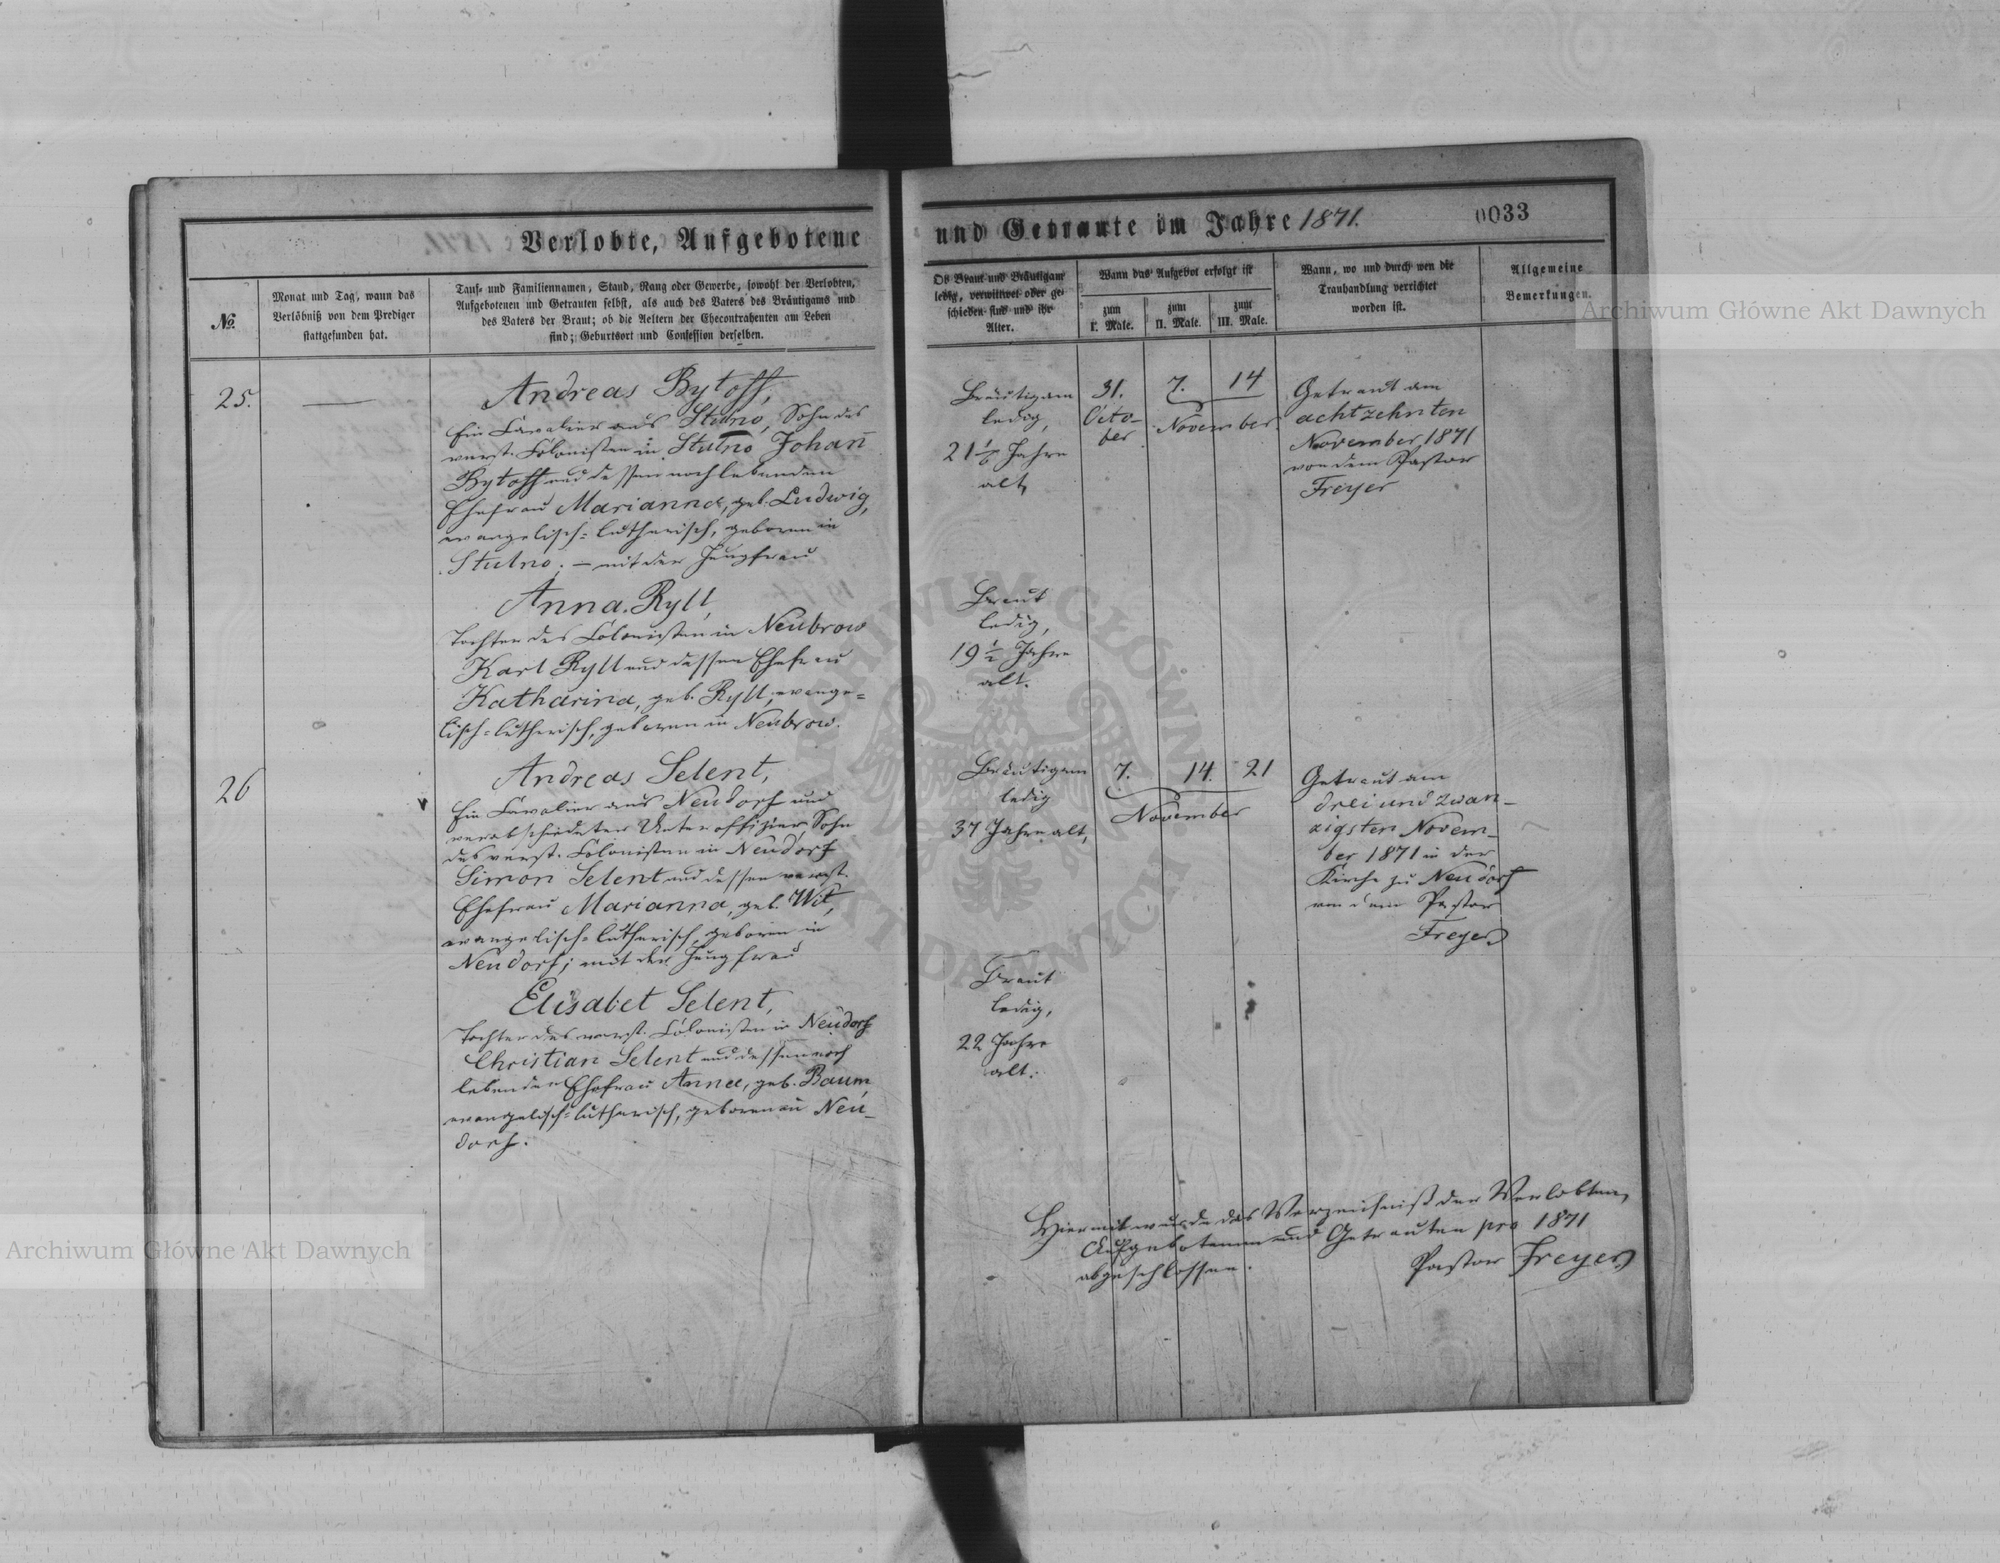 Verlobte, Aufgebotene
und Getraute im Jahre 1871.
0033
No.
Monat und Tag, wann das
Verlöbniß von dem Prediger
stattgefunden hat.
Tauf- und Familiennamen, Stand, Rang oder Gewerbe, sowohl der Verlobten,
Aufgebotenen und Getrauten selbst, als auch des Vaters des Bräutigams und
des Vaters der Braut; ob die Aeltern der Ehecontrahenten am Leben
sind; Geburtsort und Confession derselben.
Ob Braut und Bräutigam
ledig, verwittwet oder ge-
schieden sind und ihr
Alter.
Wann das Aufgebot erfolgt ist
zum
I. Male.
zum
II. Male.
zum
III. Male.
Wann, wo und durch wen die
Trauhandlung verrichtet
worden ist.
Allgemeine
Bemerkungen.
25.
Andreas Bytoff,
Ein Cavalier aus Stulno, Sohn des
verst. Colonisten in Stulno Johan̄
Bytoff und dessen noch lebenden
Ehefrau Marianna, geb. Ludwig,
evangelisch=lutherisch, geboren in
Stulno; – mit der Jungfrau
Anna Ryll,
Tochter des Colonisten in Neubrow
Karl Ryll und dessen Ehefrau
Katharina, geb. Ryll, evange=
lisch=lutherisch, geboren in Neubrow.
Bräutigam
ledig,
21 Jahre
alt,
Braut
ledig,
19 1/2 Jahre
alt.
31.
Octo-
ber
7.
14
November
Getraut am
achtzehnten
November 1871
von dem Pastor
Freyer
26
Andreas Selent,
Ein Cavalier aus Neudorf und
verabschiedeter Unteroffizier, Sohn
des verst. Colonisten in Neudorf
Simon Selent und dessen verst.
Ehefrau Marianna, geb. Wit,
evangelisch=lutherisch, geboren in
Neudorf; mit der Jungfrau
Elisabet Selent,
Tochter des verst. Colonisten in Neudorf
Christian Selent und dessen noch
lebenden Ehefrau Anna, geb. Baum
evangelisch=lutherisch, geboren in Neu-
dorf.
Bräutigam
ledig
37 Jahre alt,
Braut
ledig,
22 Jahre
alt.
7.
14.
21
November
Getraut am
drei und zwan-
zigsten Novem-
ber 1871 in der
Kirche zu Neudorf
von dem Pastor
Freyer
Hiermit wurde das Verzeichniß der Verlobten,
Aufgebotenen und Getrauten pro 1871
abgeschlossen.
Pastor Freyer
Archiwum Główne Akt Dawnych
Archiwum Główne Akt Dawnych
ARCHIWUM GŁÓWNE AKT DAWNYCH